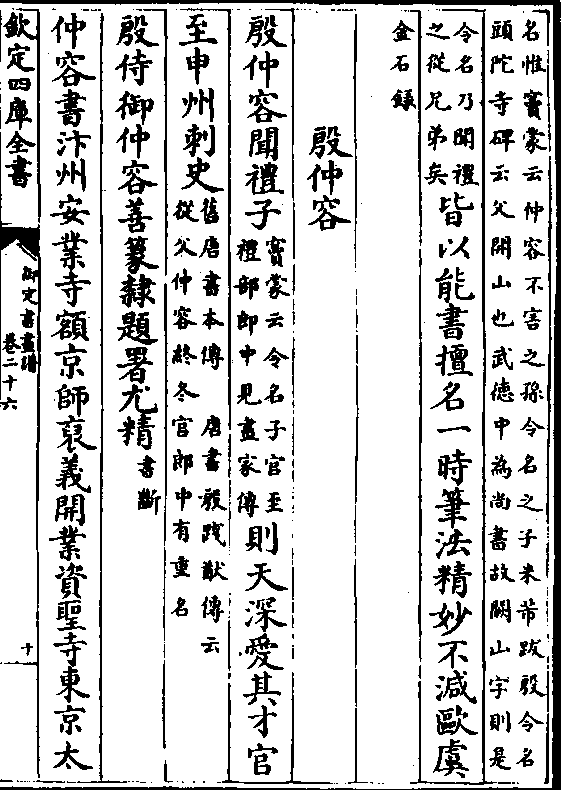 名惟竇蒙云仲容不害之孫令名之子米芾跋殷令名
頭陀寺碑云父開山也武德中為尚書故闕山字則是
令名乃聞禮之從兄弟矣皆以能書擅名一時筆法精妙不減歐虞
金石錄
殷仲容
殷仲容聞禮子竇蒙云令名子官至禮部郎中見畫家傳則天深愛其才官
至申州刺史舊唐書本傳 唐書殷踐猷傳云從父仲容終冬官郎中有重名
殷侍御仲容善篆隸題署尤精書斷
仲容書汴州安業寺額京師裒義開業資聖寺東京太
欽定四庫全書
御定書畫譜
卷二十六
十